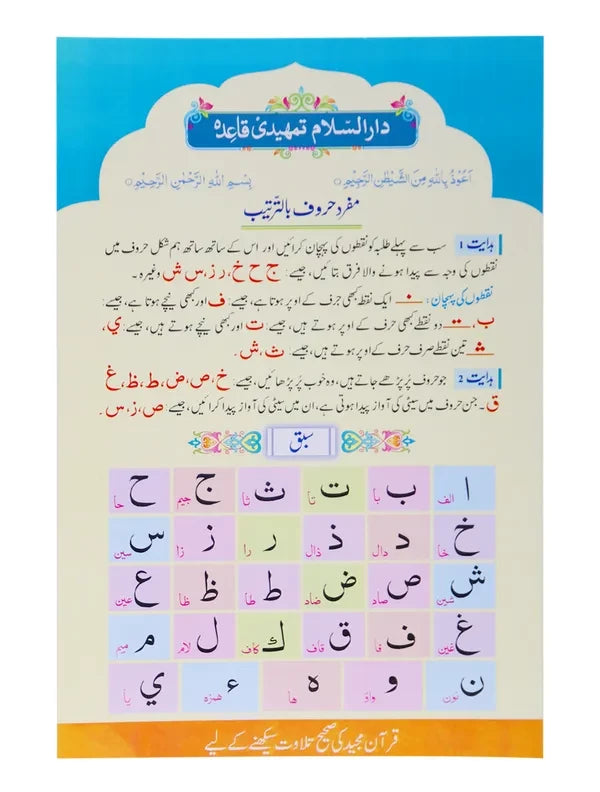 دارالسّلام تمہیدی قاعِدہ
اَعُوْذُ بِاللّٰهِ مِنَ الشَّيْطٰنِ الرَّجِيْمِ ○ بِسْمِ اللّٰهِ الرَّحْمٰنِ الرَّحِيْمِ ○
مفرد حروف بالترتیب
ہدایت 1 سب سے پہلے طلبہ کو نقطوں کی پہچان کرائیں اور اس کے ساتھ ساتھ ہم شکل حروف میں
نقطوں کی وجہ سے پیدا ہونے والا فرق بتائیں، جیسے: ج ح خ، ر ز، س ش وغیرہ۔
نقطوں کی پہچان: ایک نقطہ کبھی حرف کے اوپر ہوتا ہے، جیسے: ف اور کبھی نیچے ہوتا ہے، جیسے:
ب، دو نقطے کبھی حرف کے اوپر ہوتے ہیں، جیسے: ت اور کبھی نیچے ہوتے ہیں، جیسے: ي،
تین نقطے صرف حرف کے اوپر ہوتے ہیں، جیسے: ث، ش۔
ہدایت 2 جو حروف پُر پڑھے جاتے ہیں، وہ خوب پُر پڑھائیں، جیسے: خ، ص، ض، ط، ظ، غ
ق۔ جن حروف میں سیٹی کی آواز پیدا ہوتی ہے، ان میں سیٹی کی آواز پیدا کرائیں، جیسے: ص، ز، س۔
سبق
ا الف ب با ت تا ث ثا ج جیم ح حا
خ خا د دال ذ ذال ر را ز زا س سین
ش شین ص صاد ض ضاد ط طا ظ ظا ع عین
غ غین ف فا ق قاف ك کاف ل لام م میم
ن نون و واؤ ه ھا ء ھمزہ ي یا
قرآن مجید کی صحیح تلاوت سیکھنے کے لیے